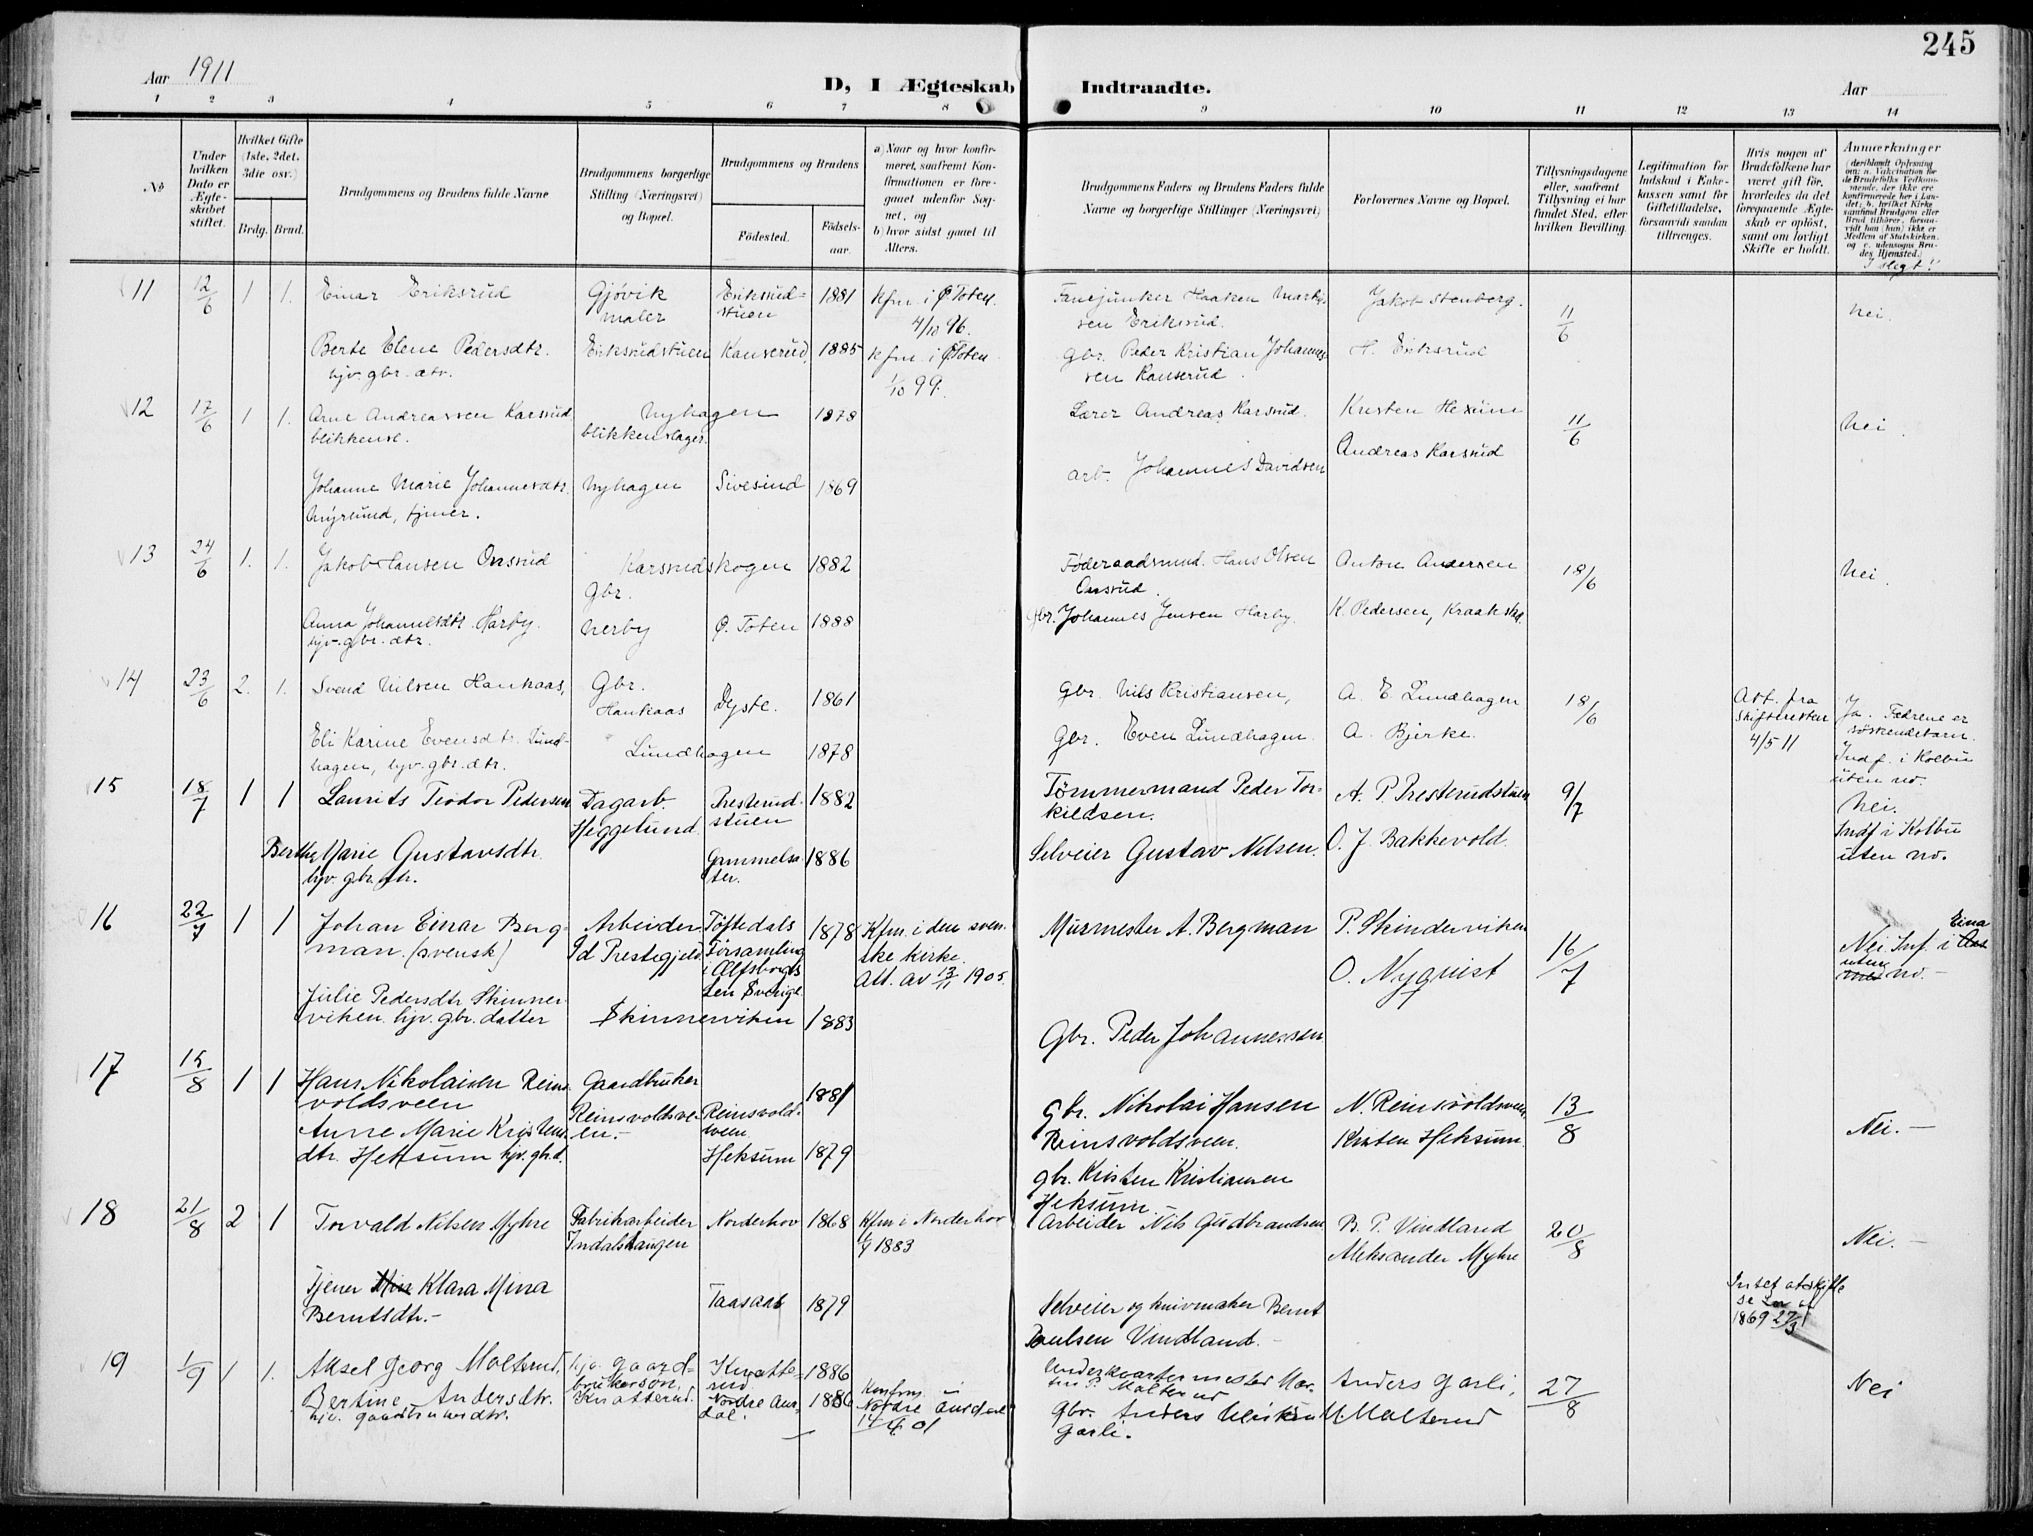 245
Aar 1911
D, I Ægteskab Indtraadte.
Aar
1 2 3 4 5 6 7 8 9 10 11 12 13 14
No
Under hvilken Dato er Ægteskabet stiftet.
Hvilket Gifte (1ste, 2det, 3die osv.)
Brdg. Brud.
Brudgommens og Brudens fulde Navne
Brudgommens borgerlige Stilling (Næringsvei) og Bopæl.
Brudgommens og Brudens
Fødested.
Fødsels-aar.
a) Naar og hvor konfirmeret, saafremt Konfirmationen er foregaaet udenfor Sognet, og
b) hvor sidst gaaet til Alters.
Brudgommens Faders og Brudens Faders fulde Navne og borgerlige Stillinger (Næringsvei)
Forlovernes Navne og Bopæl.
Tillysningsdagene eller, saafremt Tillysning ei har fundet Sted, efter hvilken Bevilling.
Legitimation for Indskud i Enkekassen samt for Giftetilladelse, forsaavidt saadan tiltrænges.
Hvis nogen af Brudefolkene har været gift før, hvorledes da det foregaaende Ægteskab er opløst, samt om lovligt Skifte er holdt.
Anmærkninger
I slegt?
11 12/6 1 1. Einar Eriksrud Gjøvik maler Eriksrud-stuen 1881 kfm. i Ø Toten. 4/10 96. Fanejunker Haaken Eriksrud. Jakob Stenberg. 11/6 nei.
Berte Elene Pedersdtr. hjv. gbr. dtr. Eriksrudstuen Kanserud, 1885 kfm. i Ø Toten 1/10 99. Gbr. Peder Kristian Johannessen Kanserud. H. Eriksrud
12 17/6 1 1. Arne Andreassen Karsrud blikkensl. Nyhagen blikkenslager. 1878 Lærer Andreas Karsrud. Kristen Hexum 11/6 Nei.
Andreas Karsrud
Johanne Marie Johannesdtr. Myrlund, tjener. Nyhagen Sivesind 1869 arb. Johannes Davidsen
13 24/6 1. 1. Jakob Hansen Onsrud Karsrudskogen Gbr. 1882 Føderaadsmand Hans Olsen Onsrud. Anton Andersen 18/6 Nei.
Anna Johannesdtr. Harby. hjv. gbr. dtr. Nerby Ø. Toten 1888 Gbr. Johannes Jensen Harby. K. Pedersen,
14 23/6 2. 1. Svend Nilsen Hankaas, Gbr. Hankaas Dyste. 1861 Gbr. Nils Kristiansen, A. E Lundhagen 18/6 Att. fra skifteretten 4/5 11 Ja. Fædrene er søskendebarn.
Eli Karine Evensdtr. Lund-hagen, hjv. gbr. dtr. Lundhagen 1878 Gbr. Even Lundhagen. A. Bjerke. Indf. i Kolbu uten no.
15 18/7 1 1 Laurits Teodor Pedersen Dagarb. Heggelund. Presterud-stuen 1882 Tømmermand Peder Tor-kildsen. A. P. Presterudstuen 9/7 Nei. Indf i Kolbu uten no.
Berthe Marie Gustavsdtr. hjv. gbr. dtr. 1886 Selveier Gustav Nilsen. O. J. Bakkevold.
16 22/7 1 1 Johan Einar Berg-man. (svensk) Arbeider Töftedals Församling i Elfsborgs Len Sverige 1878 Kfm. i den sven-ske kirke. Att. av 13/11 1905. Murmester A. Bergman P. Skinderviken 16/7 Nei Inf. i Eina uten no.-
O. Nyquist
Julie Pedersdtr Skinner-viken. hjv. gbr. datter Skinnerviken 1883 Gbr. Peder Johannessen
17 15/8 1 1 Hans Nikolaisen Reins-voldsveen Gaardbruker Reinsvoldsve-en.- Reinsvold-sveen 1881 Gbr. Nikolai Hansen Reinsvoldsveen. N. Reinsvoldsveen. 13/8 Nei.-
Anne Marie Kristens-dtr. Heksum hjv. gb.d. Heksum 1879 gbr. Kristen Kristiansen Heksum.- Kristen Heksum.
18 21/8 2 1 Torvald Nilsen Myhre Fabrikarbeider Norderhov 1868 Kfm i Norderhov 1883 Arbeider Nils Gudbrandsen B. P. Vindland 20/8 Nei.-
Aleksander Myhre
Tjener Klara Mina Berntsdtr.- 1879 Selveier og knivmaker Bernt Paulsen Vindland.- 1869 27/3
19 1/9 1 1. Aksel Georg Malterud, hjv. gaard-brukersøn. Knatterud. Knatte-rud 1886 Underkvartermester Malterud Anders Garli, 27/8 Nei
Bertine Andersdtr. hjv. gaardbrukerdtr. Nordre Aur-dal. 1886 Konfirm. i Nordre Aurdal Gbr. Anders Garli. M. Malterud